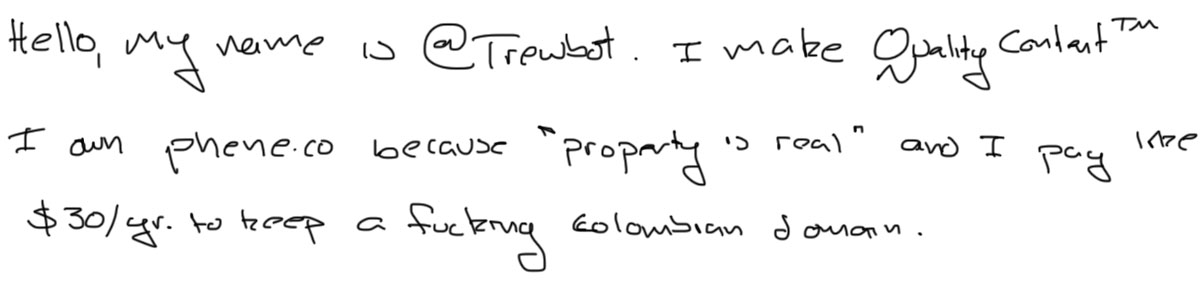 Hello, my name is @Trewbot. I make Quality Content™
I own phene.co because "property is real" and I pay like
$30/yr. to keep a fucking Colombian domain.